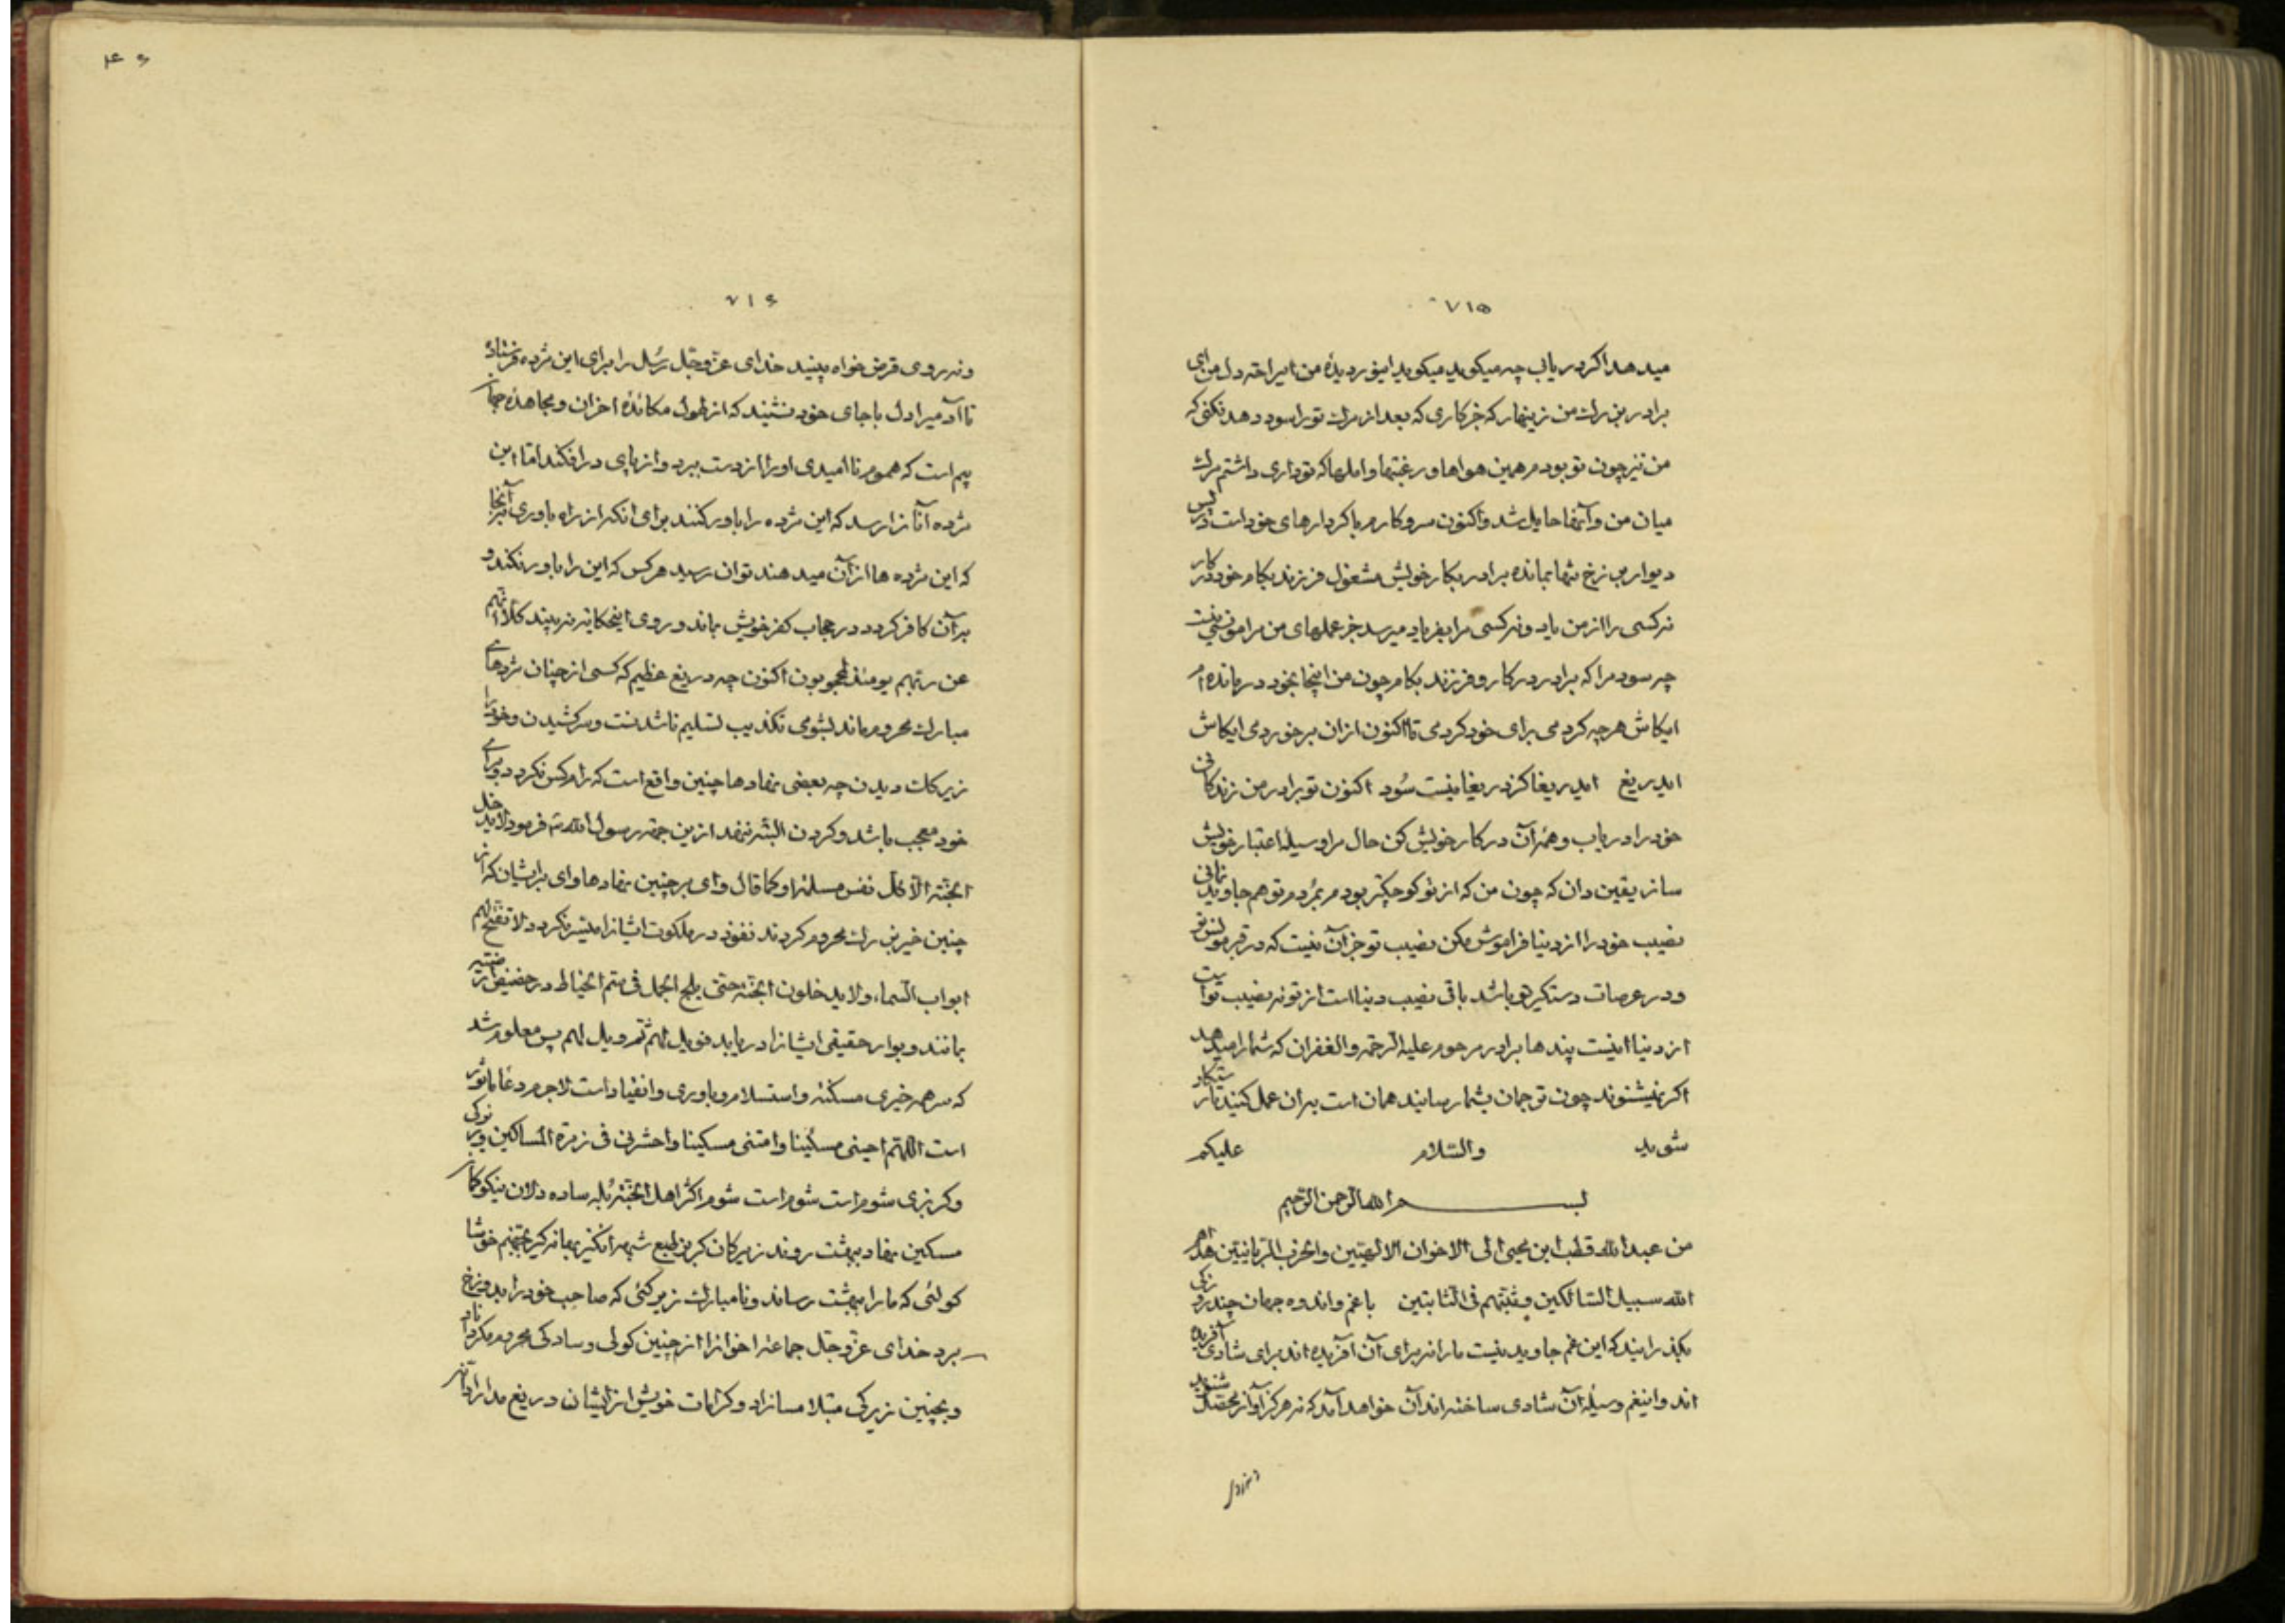 ۷۱۵
میدهد اکر دریاب چه میکوید میکوید اینور دیدۀ من امیراحمد دل من ای
برادر بزرك من زینهار که جز کاری که بعد از مرك تو را سود دهد نکنی که
من نیز چون تو بودم همین هواها و رغبتها و املها که تو داری داشتم مرك
میان من و آنها حایل شد و اکنون سر و کارم با کردارهای خود است در پس
دیوار برزخ تنها بمانده برادر بکار خویش مشغول فرزند بکام خود در کار
نه کسی را از من یاد و نه کسی مرا بفریاد میرسد جز عملهای من مرا مونسی نیست
چه سود مرا که برادر در کار و فرزند بکام چون من اینجا بخود درمانده‌ام
ایکاش هر چه کردمی برای خود کردمی تا اکنون از ان برخوردمی ایکاش
ایدریغ ایدریغا کز دریغا نیست سود اکنون تو برادر من زندکانی
خود را دریاب و همه آن در کار خویش کن حال مرا وسیلۀ اعتبار خویش
ساز یقین دان که چون من که از تو کوچکتر بودم بمردم تو هم جاوید نمانی
نصیب خود را از دنیا فراموش مکن نصیب تو جز آن نیست که در قبر مونس تو
و در عرصات دستکیر تو باشد باقی نصیب دنیا است از تو نه نصیب تو است
از دنیا اینست پندها برادر مرحوم علیه الرحمه والغفران که شما را میدهد
اکر نمیشنوند چون ترجمان بشما رسانید همان است بدان عمل کنید تا رستکار
شوید والسّلام علیکم
بسم الله الرحمن الرحیم
من عبدالله قطب ابن یحیی الی الاخوان الالهیین والحزب الربانیین هداهم
الله سبیل السّالکین و ثبّتهم فی الثابتین با غم و اندوه جهان چند روزکی
بکذرانید که این غم جاوید نیست ما را نه برای آن آفریده اند برای شادی آفریده
اند و اینغم وسیلۀ آن شادی ساخته اند آن خواهد آمد که نه هرکز آواز شنوید
۴۶
۷۱۶
و نه روی قرض خواه بینید خدای عزّ و جلّ رسل را برای این مژده فرستاد
تا آدمیرا دل با جای خود نشیند که از طول مکائدۀ احزان و مجاهدۀ
بیم است که هموم ناامیدی او را از دست ببرد و از پای در افکند امّا این
مژده آنانرا رسد که این مژده را باور کنند برای انکه از راه باوری بر آنجا
که این مژده ها از آن میدهند توان رسید هر کس که این را باور نکند و
بر آن کافر کردد در حجاب کفر خویش بماند و روی اینحکایه نبیند کلّا انّهم
عن ربّهم یومئذ لمحجوبون اکنون چه دریغ عظیم که کسی از چنان مژدهای
مبارك محروم ماند بشومی تکذیب تسلیم ناشدنت و سرکشیدن و خود را
زیرکك دیدن چه بعضی نهادها چنین واقع است که رام کس نکردد و برای
خود معجب باشد و کردن البتّه ننهد ازین جهة رسول الله ص فرمود لا یدخل
الجنّة الّا کلّ نفس مسلمة او کما قال وای بر چنین نهادها وای بر ایشان که از
چنین خیر بزرك محروم کردند نفوذ در ملکوت ایشانرا میسّر نکردد لا تفتّح لهم
ابواب السّماء ولا یدخلون الجنّة حتّی یلج الجمل فی سمّ الخیاط در حضیض
بمانند و بوار حقیقی ایشانرا دریابد فویل لهم ثمّ ویل لهم پس معلوم شد
که سر همه خیری مسکنة و استسلام و باوری و انقیاد است لاجرم دعا ماثور
است اللّهمّ احینی مسکینا و امتنی مسکینا و احشرنی فی زمرة المساکین وزیرکی
و کربزی شوم است شوم است شوم اکثر اهل الجنّة بله ساده دلان نیکوکار
مسکین نهاد ببهشت روند زیرکان کربز طبع شر انکیز بهانه کیر بجهنّم خوشا
کولئی که ما را ببهشت رساند و نامبارك زیرکئی که صاحب خود را بدوزخ
برد خدای عزّ و جلّ جماعة اخوانرا از چنین کولی و سادکی محروم مکرداناد
و بچنین زیرکی مبتلا مسازاد و کرامات خویش از ایشان دریغ مداراد